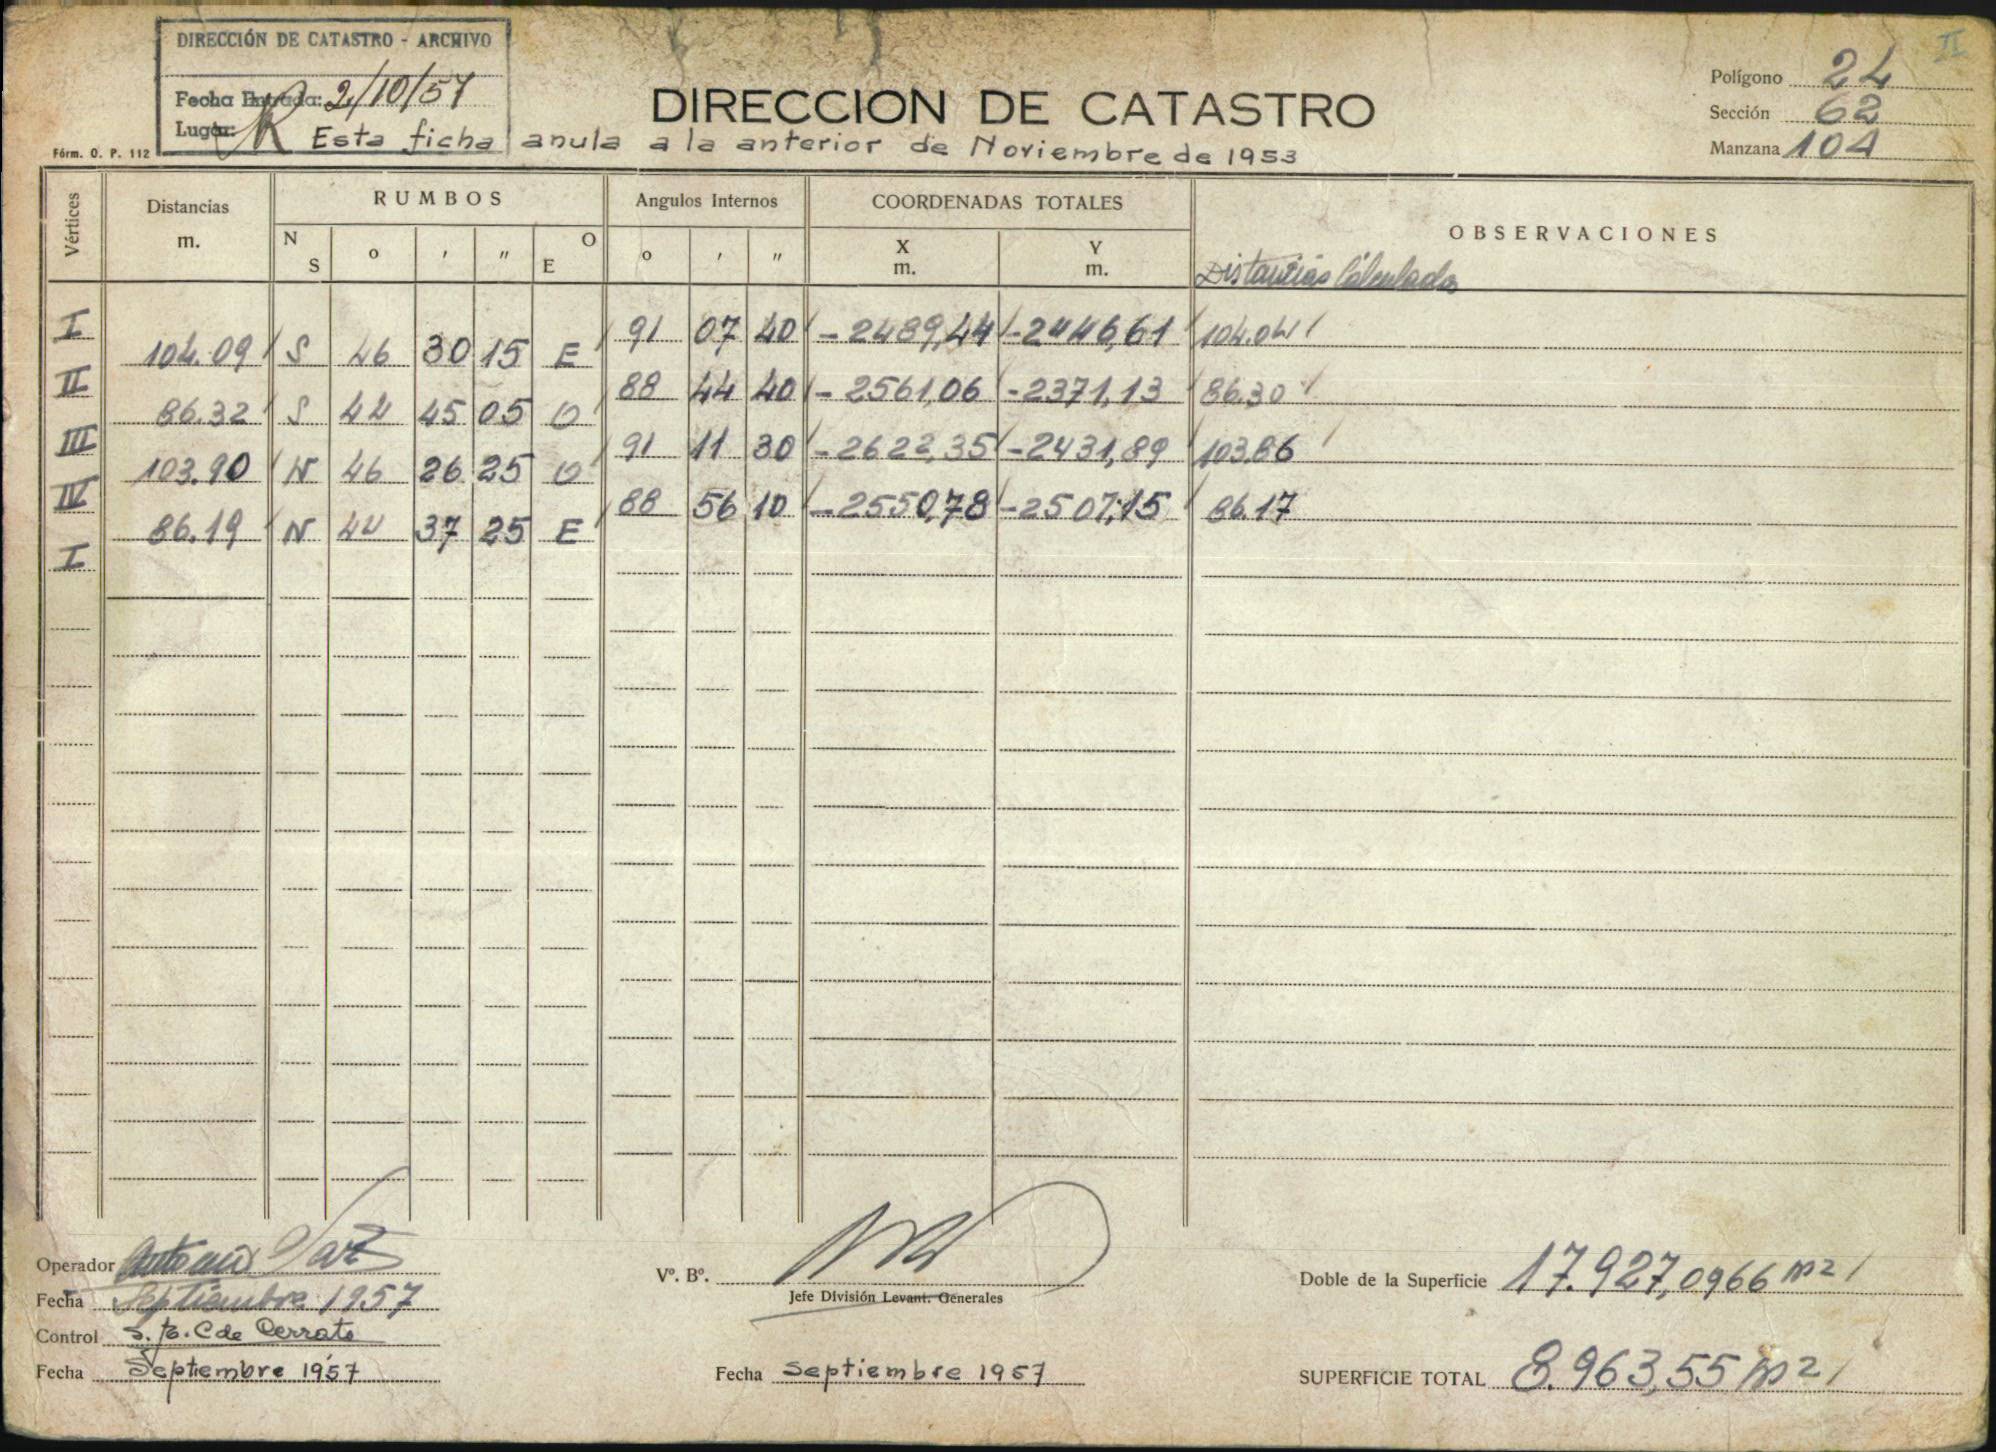 II
DIRECCIÓN DE CATASTRO - ARCHIVO
Fecha Entrada: 2/10/57
Lugar:
Fórm. O. P. 112
DIRECCION DE CATASTRO
Esta ficha anula a la anterior de Noviembre de 1953
Polígono 24
Sección 62
Manzana 104
Vértices Distancias m. RUMBOS Angulos Internos COORDENADAS TOTALES OBSERVACIONES
N S o ' " O E o ' " X m. Y m.
Distancias Calculadas
I 91 07 40 -2489,44 -2446,61 104.04
104.09 S 46 30 15 E
II 88 44 40 -2561,06 -2371,13 86.30
86.32 S 44 45 05 O
III 91 11 30 -2622,35 -2431,89 103.86
103.90 N 46 26 25 O
IV 88 56 10 -2550,78 -2507,15 86.17
86.19 N 44 37 25 E
I
Operador
Fecha Septiembre 1957
Control C de Cerrato
Fecha Septiembre 1957
Vº. Bº.
Jefe División Levant. Generales
Fecha septiembre 1957
Doble de la Superficie 17.927,0966 m2
SUPERFICIE TOTAL 8.963,55 m2